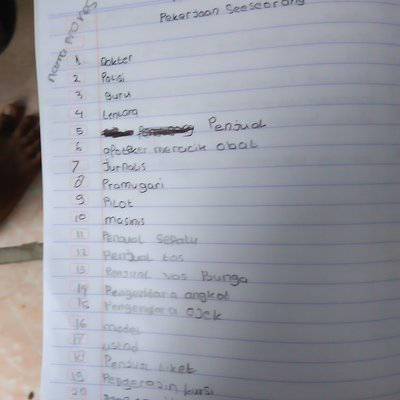 Pekerjaan Seseorang
nama profesi
1 Dokter
2 Polisi
3 guru
4 tentara
5 Penjual
6 apoteker meracik obat
7 Jurnalis
8 Pramugari
9 Pilot
10 masinis
11 Penjual sepatu
12 Penjual tas
13 Penjual vas Bunga
14 Pengendara angkot
15 Pengendara ojek
16 model
17 ustad
18 Penjual tiket
19 Pengerajin kursi
20